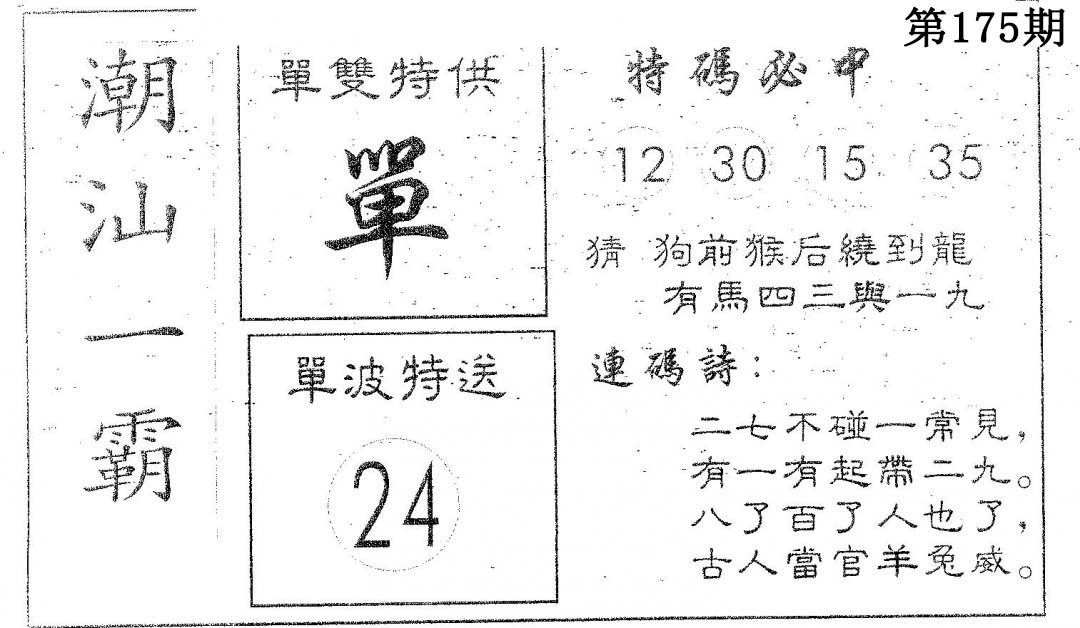 第175期
潮汕一霸
單雙特供
單
單波特送
24
特碼必中
12 30 15 35
猜 狗前猴后繞到龍
有馬四三與一九
連碼詩：
二七不碰一常見，
有一有起帶二九。
八了百了人也了，
古人當官羊兔威。